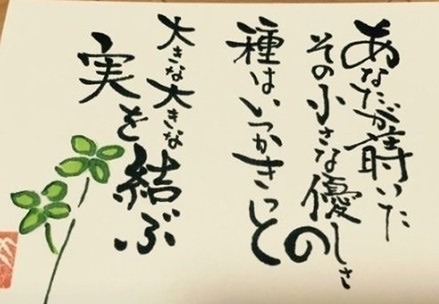 あなたが蒔いた
その小さな優しさ
の
種はいつかきっと
大きな大きな
実を結ぶ